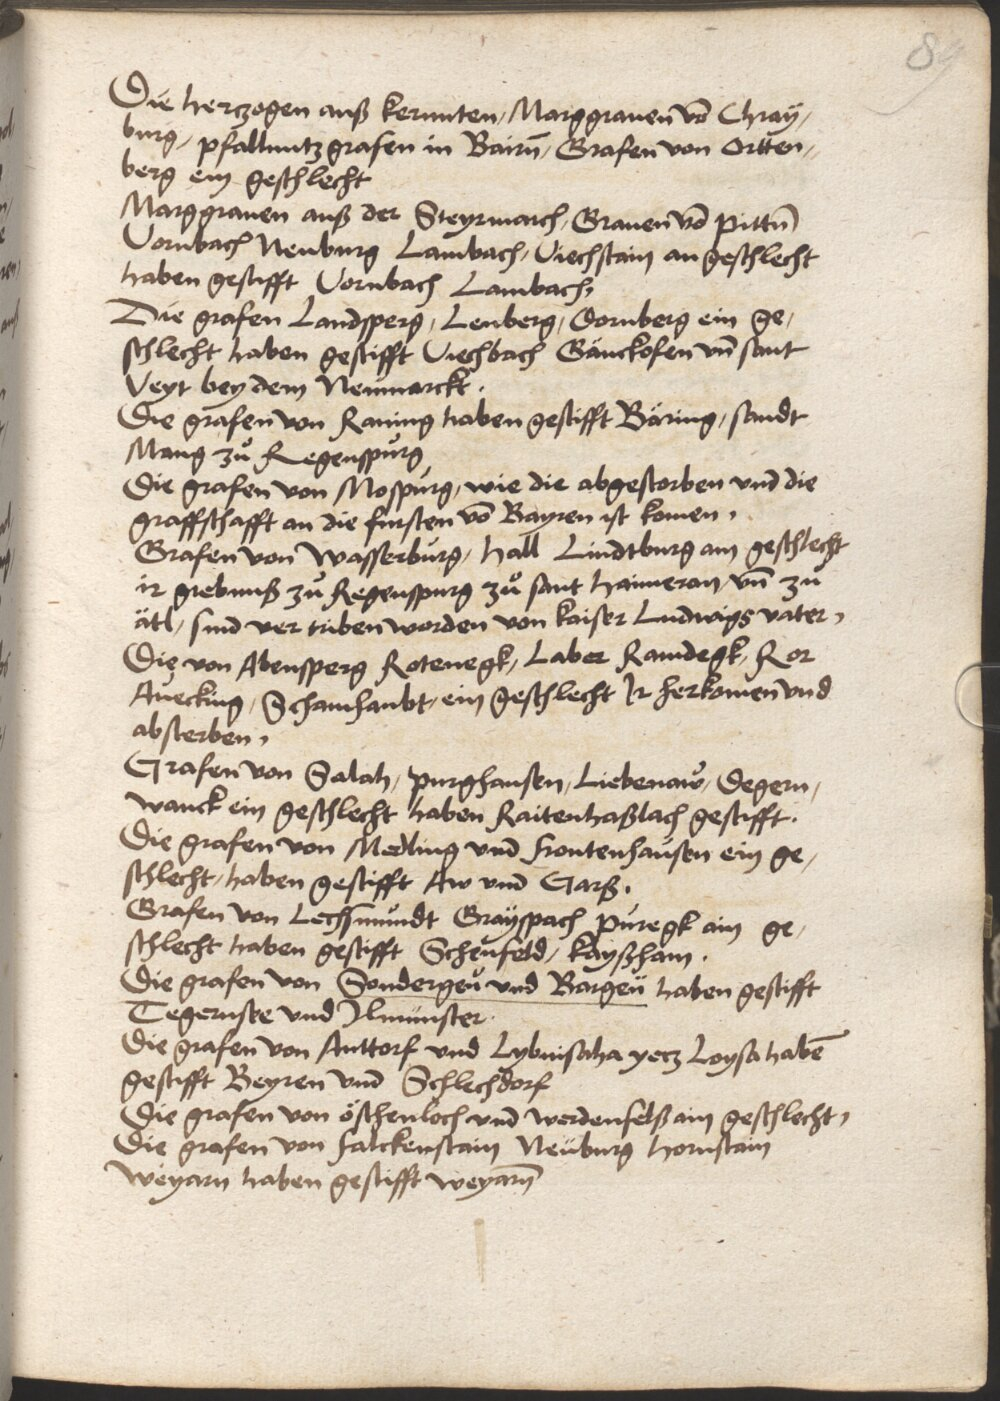 89
Die hertzogen auß kernnten, Marggrauen vō Chray,
burg, pfallnntz grafen in Bairn̄, Grafen von Ortten,,
berg ein geschlecht
Marggrauen auß der Steyrmarch, Grauen vō pittn̄
Vornbach Neuburg Lambach, Viechstain an geschlecht
haben gestifft Vornbach Lambach,
Die grafen Landsperg, Lenberg, Dornberg ein ge,
schlecht haben gestifft Viechbach Gänckofen vn̄ sant
Veyt bey dem Neumarckt.
Die grafen von Raning haben gestifft Böring, sandt
Mang zů Regenspůrg
Die grafen von Mospůrg, wie die abgestorben vnd die
graffschafft an die fursten vō Bayren ist komen,
Grafen von Wasserbůrg, hall Lindtburg am geschlecht
ir grebnuß zů Regenspurg zů sant haimeran vn̄ zů
ätl, sind vertriben worden von kaiser Ludwigs vater,
Die von Abensperg Rotenegk, Laber Ramdegk, Ror
Auecking, Schamhaubt, ein geschlecht Ir herkomen vnd
absterben,
Grafen von Salah, purghausen, Liebenaw, Degern,
wanck ein geschlecht haben Raitenhaßlach gestifft.
Die grafen von Medling vnd frontenhausen ein ge,
schlecht, haben gestifft Aw vnd Garß.
Grafen von Lechßmůndt Grayspach Půregk ain ge,
schlecht haben gestifft Schenfeld, kayßham.
Die grafen von Sondergeů vnd Bargeü haben gestifft
Tegernsee vnd Ilmünster.
Die grafen von Anttorf vnd Lybnisaha yetz Loysa habē
gestifft Beyren vnd Schlechdorf
Die grafen von öschenloch vnd werdenfelß ain geschlecht,
Die grafen von falckenstain Neüburg hornstain
weyarn haben gestifft weyarn̄